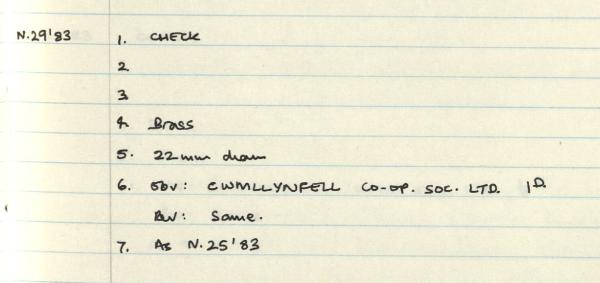 N.29'83 1. CHECK
2
3
4. Brass
5. 22mm diam
6. Obv: CWMLLYNFELL CO-OP. SOC. LTD. 1D.
Rev: Same.
7. As N.25'83